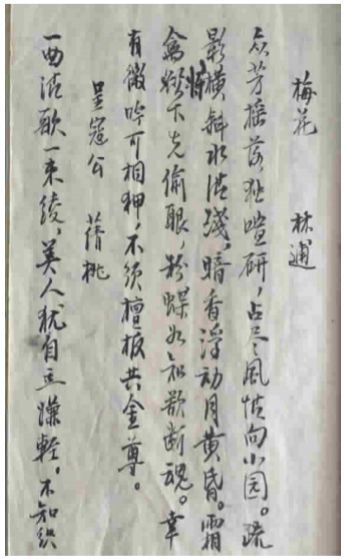 梅花　林逋
众芳摇落独喧研，占尽风情向小园。疏
影横斜水清浅，暗香浮动月黄昏。霜
禽欲下先偷眼，粉蝶如知欲断魂。幸
有微吟可相狎，不须檀板共金尊。
呈寇公　蒨桃
一曲清歌一束绫，美人犹自意嫌轻。不知织